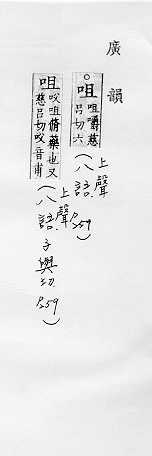 廣韻
咀咀嚼慈呂切六(上聲八語P.259)
咀㕮咀脩藥也又慈呂切㕮音甫(上聲八語子與切P.259)